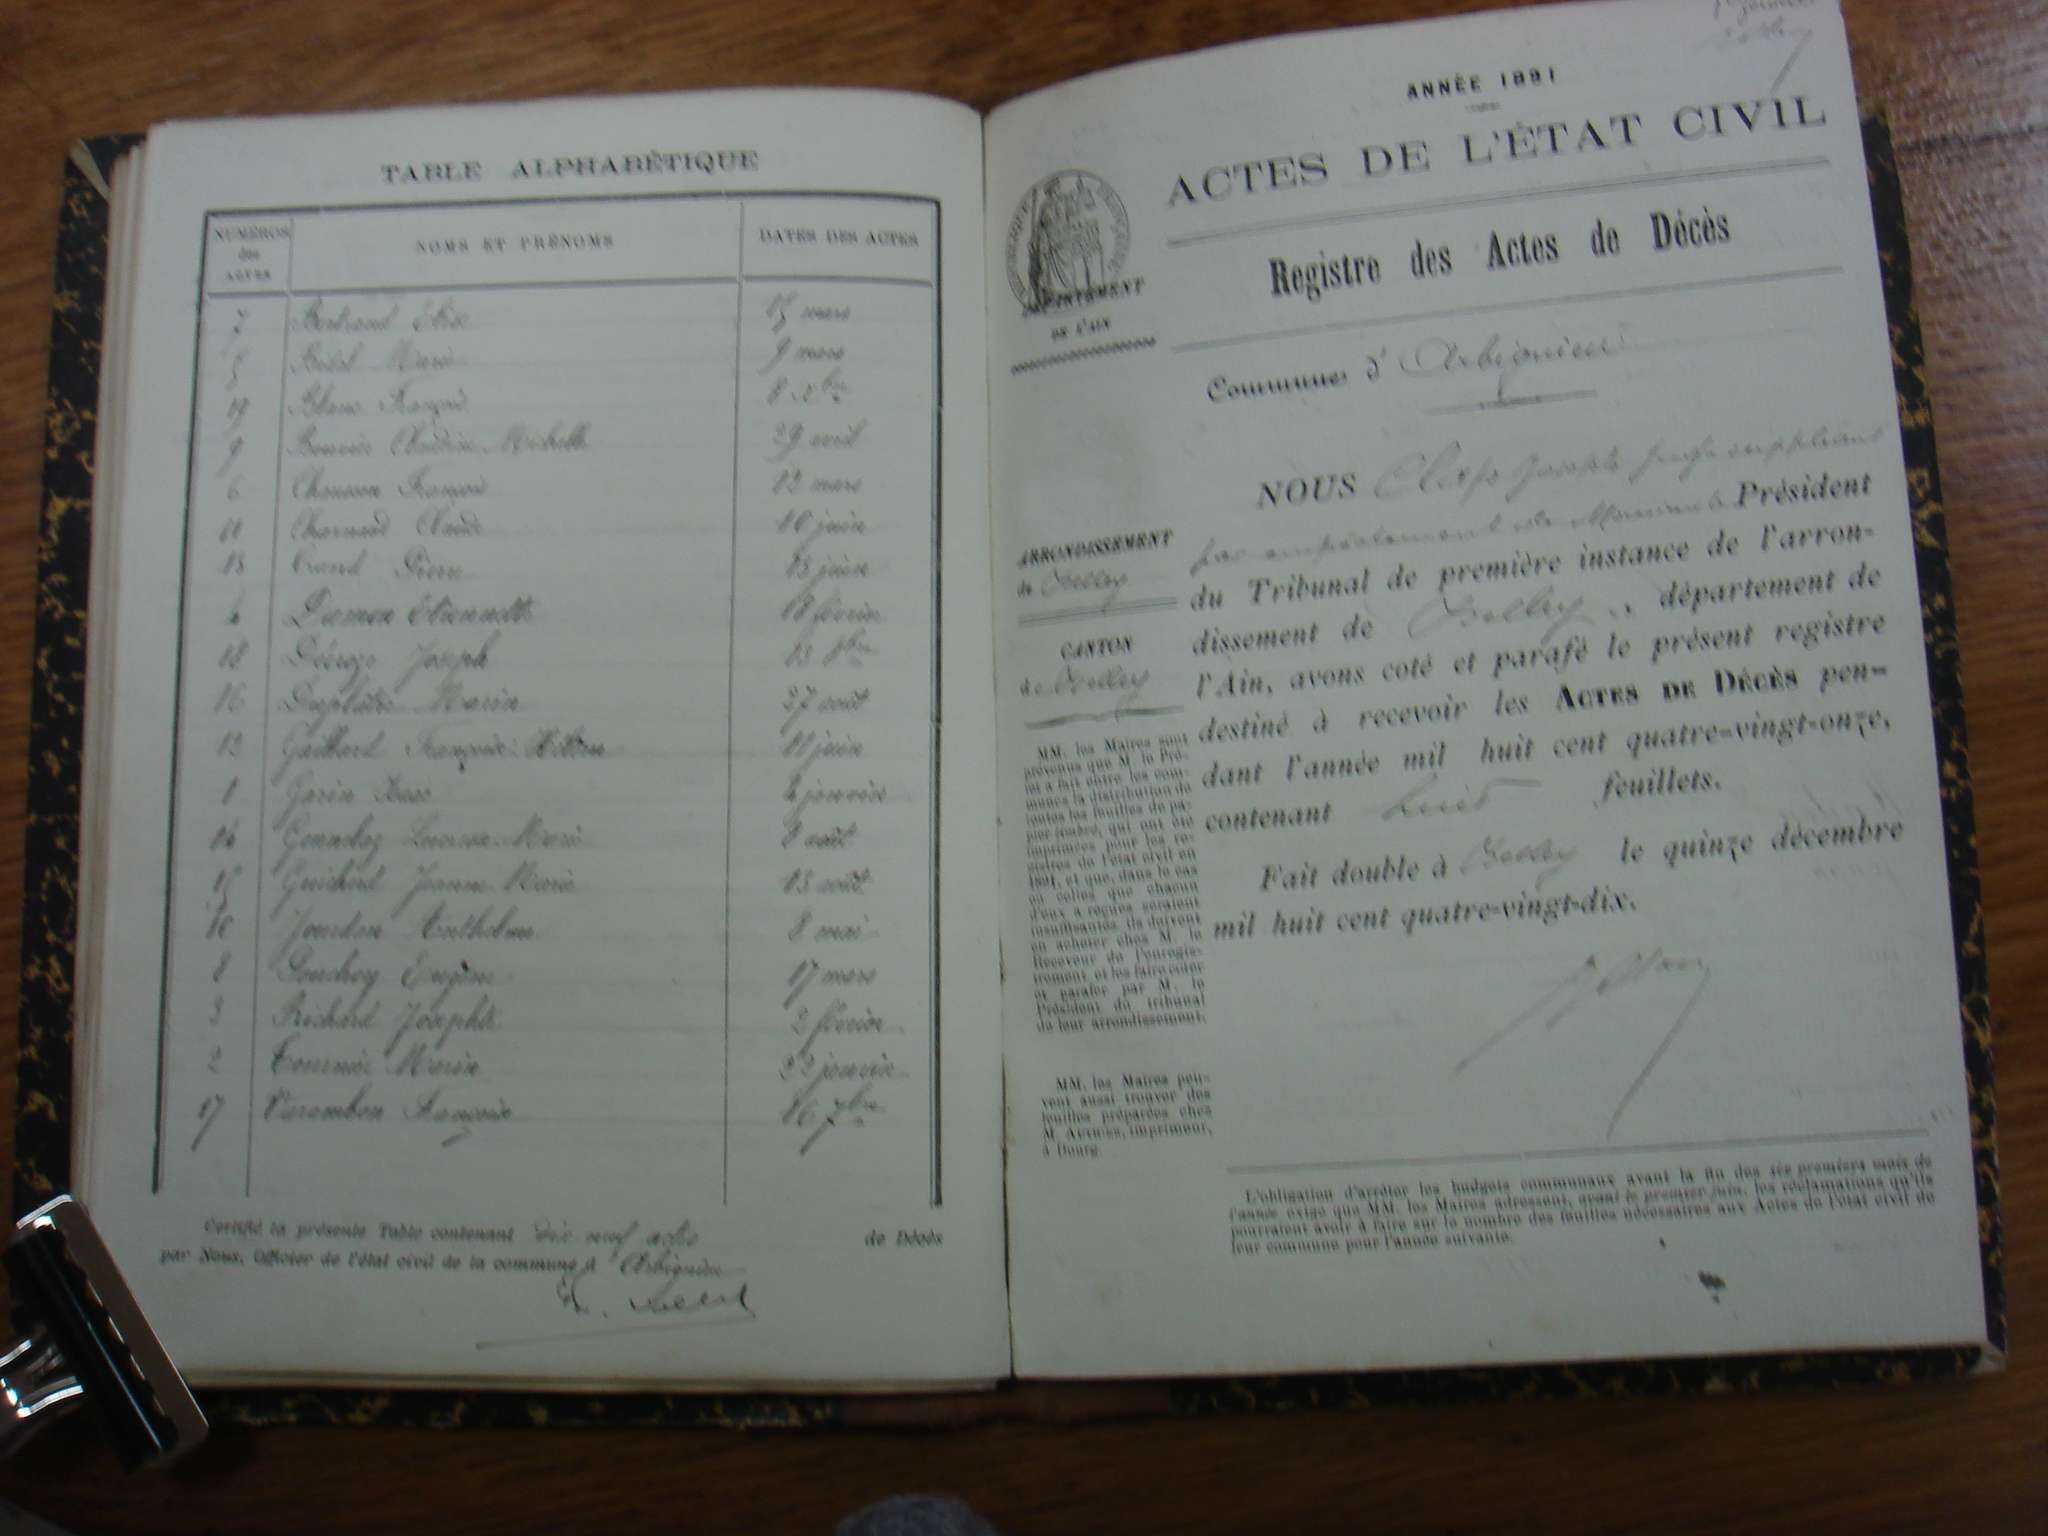 TABLE ALPHABÉTIQUE
NUMÉROS des ACTES NOMS ET PRÉNOMS DATES DES ACTES
7 Bertrand Élise 15 mars
5 Marie 9 mars
19 Blanc François 8 Xbre
9 Bouvier Claudine Michelle 29 avril
6 François 12 mars
11 Charnaud Claude 10 juin
13 Crand Pierre 15 juin
4 Damen Étiennette 18 février
18 Décroze Joseph 13 8bre
16 Duplâtre Marin 27 août
12 Gaillard Françoise 11 juin
1 Garin 4 janvier
14 Marie 8 août
15 Guichard Jeanne Marie 13 août
10 Jourdan Anthelme 8 mai
8 Eugène 17 mars
3 Richard Josephte 2 février
2 Tournier Marin 22 janvier
17 Varambon François 16 7bre
Certifié la présente Table contenant dix neuf actes de Décès
par Nous, Officier de l'état civil de la commune d'Arbignieu
ANNÉE 1891
ACTES DE L'ÉTAT CIVIL
Registre des Actes de Décès
DÉPARTEMENT
DE L'AIN
Commune d'Arbignieu
ARRONDISSEMENT
de Belley
CANTON
de Belley
NOUS Clap Joseph juge suppléant
par empêchement de Monsieur le Président
du Tribunal de première instance de l'arron-
dissement de Belley, département de
l'Ain, avons coté et parafé le présent registre
destiné à recevoir les ACTES DE DÉCÈS pen-
dant l'année mil huit cent quatre-vingt-onze,
contenant huit feuillets.
Fait double à Belley le quinze décembre
mil huit cent quatre-vingt-dix.
MM. les Maires sont
prévenus que M. le Pré-
fet a fait entre les com-
munes la distribution de
toutes les feuilles de pa-
pier timbré, qui ont été
imprimées pour les re-
gistres de l'état civil en
1891, et que, dans le cas
où celles que chacun
d'eux a reçues seraient
insuffisantes, ils doivent
en acheter chez M. le
Receveur de l'enregis-
trement et les faire coter
et parafer par M. le
Président du tribunal
de leur arrondissement.
MM. les Maires peu-
vent aussi trouver des
feuilles préparées chez
M. AUTHIER, imprimeur,
à Bourg.
L'obligation d'arrêter les budgets communaux avant la fin des six premiers mois de
l'année exige que MM. les Maires adressent, avant le premier juin, les réclamations qu'ils
pourraient avoir à faire sur le nombre des feuilles nécessaires aux Actes de l'état civil de
leur commune pour l'année suivante.